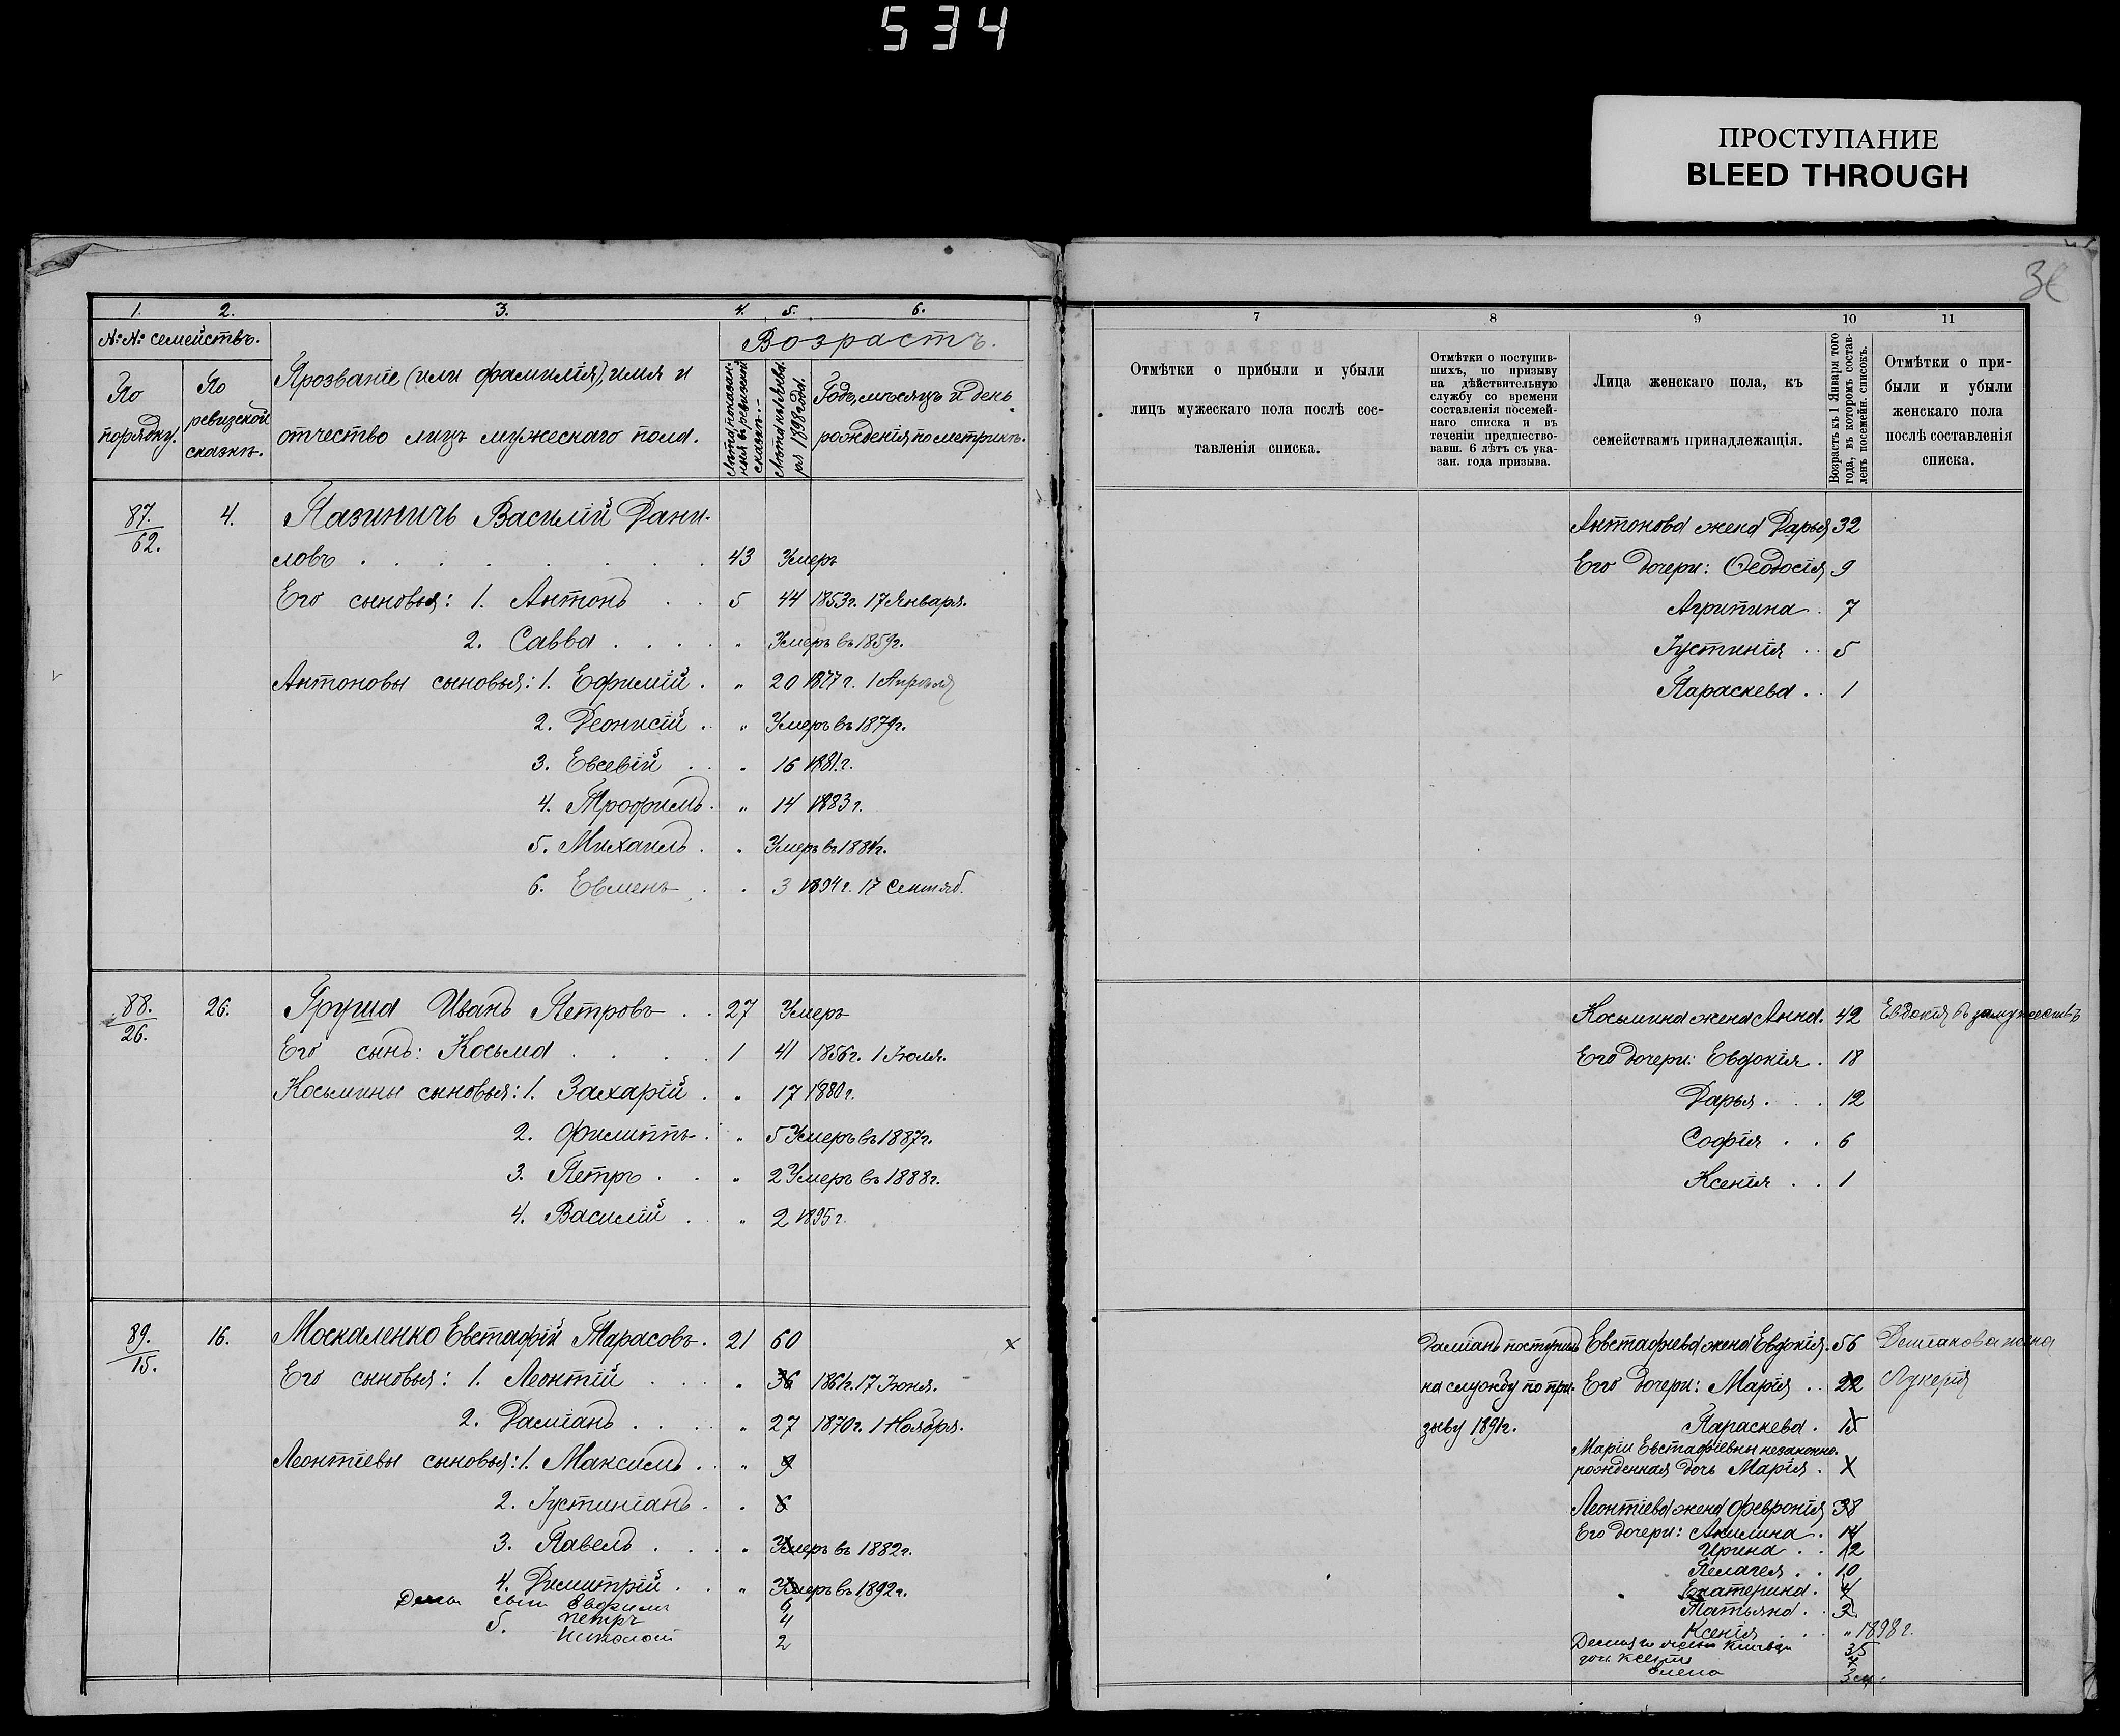 534
ПРОСТУПАНИЕ
BLEED THROUGH
1. 2. 3. 4. 5. 6.
№№ семействъ.
По порядку.
По ревизской сказкѣ.
Прозваніе (или фамилія), имя и
отчество лицъ мужескаго пола.
Возрастъ.
Лѣта показан-
ныя въ ревизской
сказкѣ.
Лѣта къ 1 Янва-
ря 1898 года.
Годъ, мѣсяцъ и день
рожденія по метрикѣ.
87./62. 4. Пазиничъ Василій Дани-
ловъ 43 Умеръ
Его сыновья: 1. Антонъ 5 44 1853г. 17 Января.
2. Савва " Умеръ въ 1859г.
Антоновы сыновья: 1. Ефимій " 20 1877г. 1 Апрѣля
2. Деонисій " Умеръ въ 1879г.
3. Евсевій " 16 1881.г.
4. Трофимъ " 14 1883г.
5. Михаилъ " Умеръ въ 188г.
6. Евменъ " 3 1894г. 17 Сентяб.
88./26. 26. Груша Иванъ Петровъ 27 Умеръ
Его сынъ: Косьма 1 41 1856г. 1 Іюля.
Косьмины сыновья: 1. Захарій " 17 1880г.
2. Филиппъ " 5 Умеръ въ 1887г.
3. Петръ " 2 Умеръ въ 1888г.
4. Василій " 2 1895г.
89./15. 16. Москаленко Евстафій Тарасовъ. 21 60 х
Его сыновья: 1. Леонтій " 36 1861г. 17 Іюня.
2. Даміанъ " 27 1870г. 1 Ноября.
Леонтіевы сыновья: 1. Максимъ " 9
2. Іустиніанъ " 6
3. Павелъ " Умеръ въ 1882г.
4. Димитрій " Умеръ въ 1892г.
сын 6
5. Петръ 4
Николай 2
7 8 9 10 11
Отмѣтки о прибыли и убыли
лицъ мужескаго пола послѣ сос-
тавленія списка.
Отмѣтки о поступив-
шихъ, по призыву
на дѣйствительную
службу со времени
составленія посемей-
наго списка и въ
теченіи предшество-
вавш. 6 лѣтъ съ ука-
зан. года призыва.
Лица женскаго пола, къ
семействамъ принадлежащія.
Возрастъ къ 1 Января того
года, въ которомъ состав-
ленъ посемейн. списокъ.
Отмѣтки о при-
были и убыли
женскаго пола
послѣ составленія
списка.
Антонова жена Дарья 32
Его дочери: Ѳеодосія 9
Агрипина 7
Іустинія 5
Параскева 1
Косьмина жена Анна. 42 Евдокія въ замужествѣ
Его дочери: Евдокія 18
Дарья 12
Софія 6
Ксенія 1
Даміанъ поступилъ Евстафіева жена Евдокія. 56 жена
на службу по при- Его дочери: Марія 22 Лукерія
зыву 1891г. Параскева 15
Маріи Евстафіевны незаконно-
рожденная дочь Марія
Леонтіева жена Февронія 38
Его дочери: Акилина 14
Ирина 12
Пелагея 10
Екатерина 4
Татьяна 2
Ксенія " 1898г.
35
доч. Ксенія
Елена 3 м.